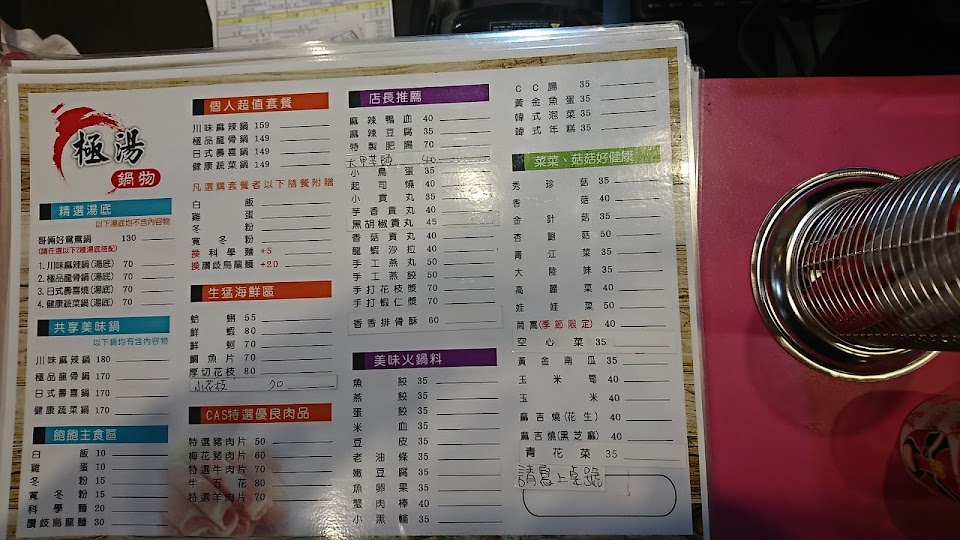 極湯
鍋物
精選湯底
以下湯底均不含內容物
哥倆好鴛鴦鍋 130
(請任選以下2種湯底搭配)
1.川味麻辣鍋(湯底) 70
2.極品龍骨鍋(湯底) 70
3.日式壽喜燒(湯底) 70
4.健康蔬菜鍋(湯底) 70
共享美味鍋
以下鍋均有含內容物
川味麻辣鍋 180
極品龍骨鍋 170
日式壽喜鍋 170
健康蔬菜鍋 170
飽飽主食區
白飯 10
雞蛋 10
冬粉 15
寬冬粉 15
科學麵 20
讚歧烏龍麵 30
個人超值套餐
川味麻辣鍋 159
極品龍骨鍋 149
日式壽喜鍋 149
健康蔬菜鍋 149
凡選購套餐者以下隨餐附贈
白飯
雞蛋
冬粉
寬冬粉
換科學麵 +5
換讚歧烏龍麵 +20
生猛海鮮區
蛤蜊 55
鮮蝦 80
鮮蚵 70
鯛魚片 70
厚切花枝 80
小花枝 70
CAS特選優良肉品
特選豬肉片 50
梅花豬肉片 60
特選牛肉片 70
牛五花 80
特選羊肉片 70
店長推薦
麻辣鴨血 40
麻辣豆腐 35
特製肥腸 70
大甲芋頭 40
小鳥蛋 35
起司燒 40
小貢丸 35
芋香貢丸 40
黑胡椒貢丸 45
香菇貢丸 40
龍蝦沙拉 40
手工燕丸 50
手工燕餃 50
手打花枝漿 70
手打蝦仁漿 70
香香排骨酥 60
美味火鍋料
魚餃 35
燕餃 35
蛋餃 35
米血 35
豆皮 35
老油條 35
嫩豆腐 35
魚卵果 35
蟹肉棒 40
小黑輪 35
CC腸 35
黃金魚蛋 35
韓式泡菜 35
韓式年糕 35
菜菜、菇菇好健康
秀珍菇 35
香菇 40
金針菇 35
杏鮑菇 50
青江菜 35
大陸妹 35
高麗菜 40
娃娃菜 50
茼蒿(季節限定) 40
空心菜 35
黃金南瓜 35
玉米筍 40
玉米 40
麻吉燒(花生) 40
麻吉燒(黑芝麻) 40
青花菜 35
請寫上桌號